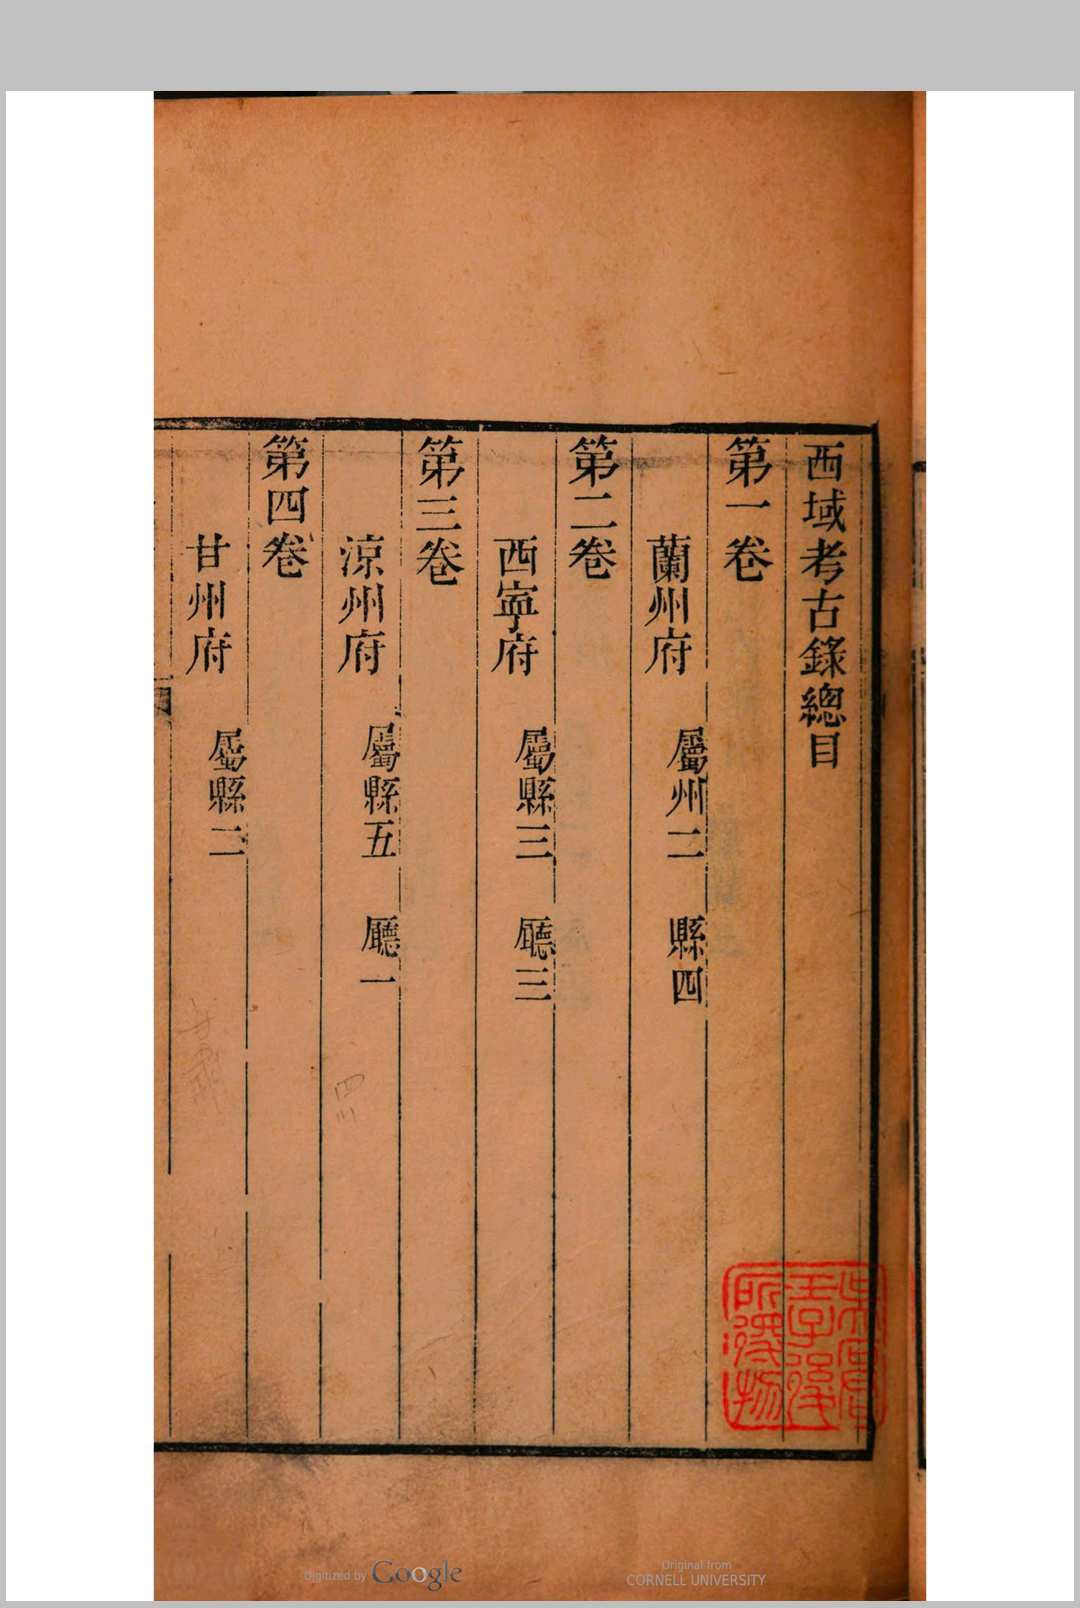 西域考古錄總目
第一卷
蘭州府　屬州二　縣四
第二卷
西寧府　屬縣三　廳三
第三卷
涼州府　屬縣五　廳一
第四卷
甘州府　屬縣二
四川
Digitized by Google
Original from
CORNELL UNIVERSITY